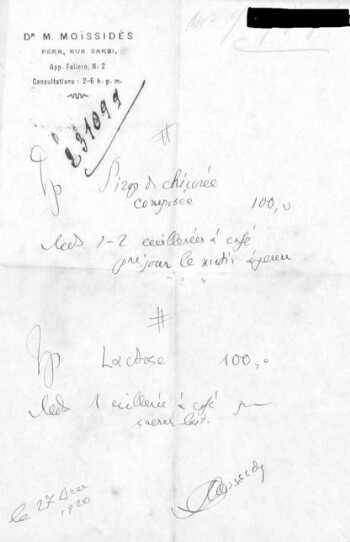 Dr M. MOÏSSIDÈS
PERA, RUE SAKSI,
App. Faliern, N. 2
Consultations : 2-6 h. p. m.
231099
#
Rp Sirop de chicorée
composée 100,0
1-2 cuillerées à café
par jour le matin à jeun
#
Rp Lactose 100,0
1 cuillerée à café pour
sucrer lait.
le 27
1920